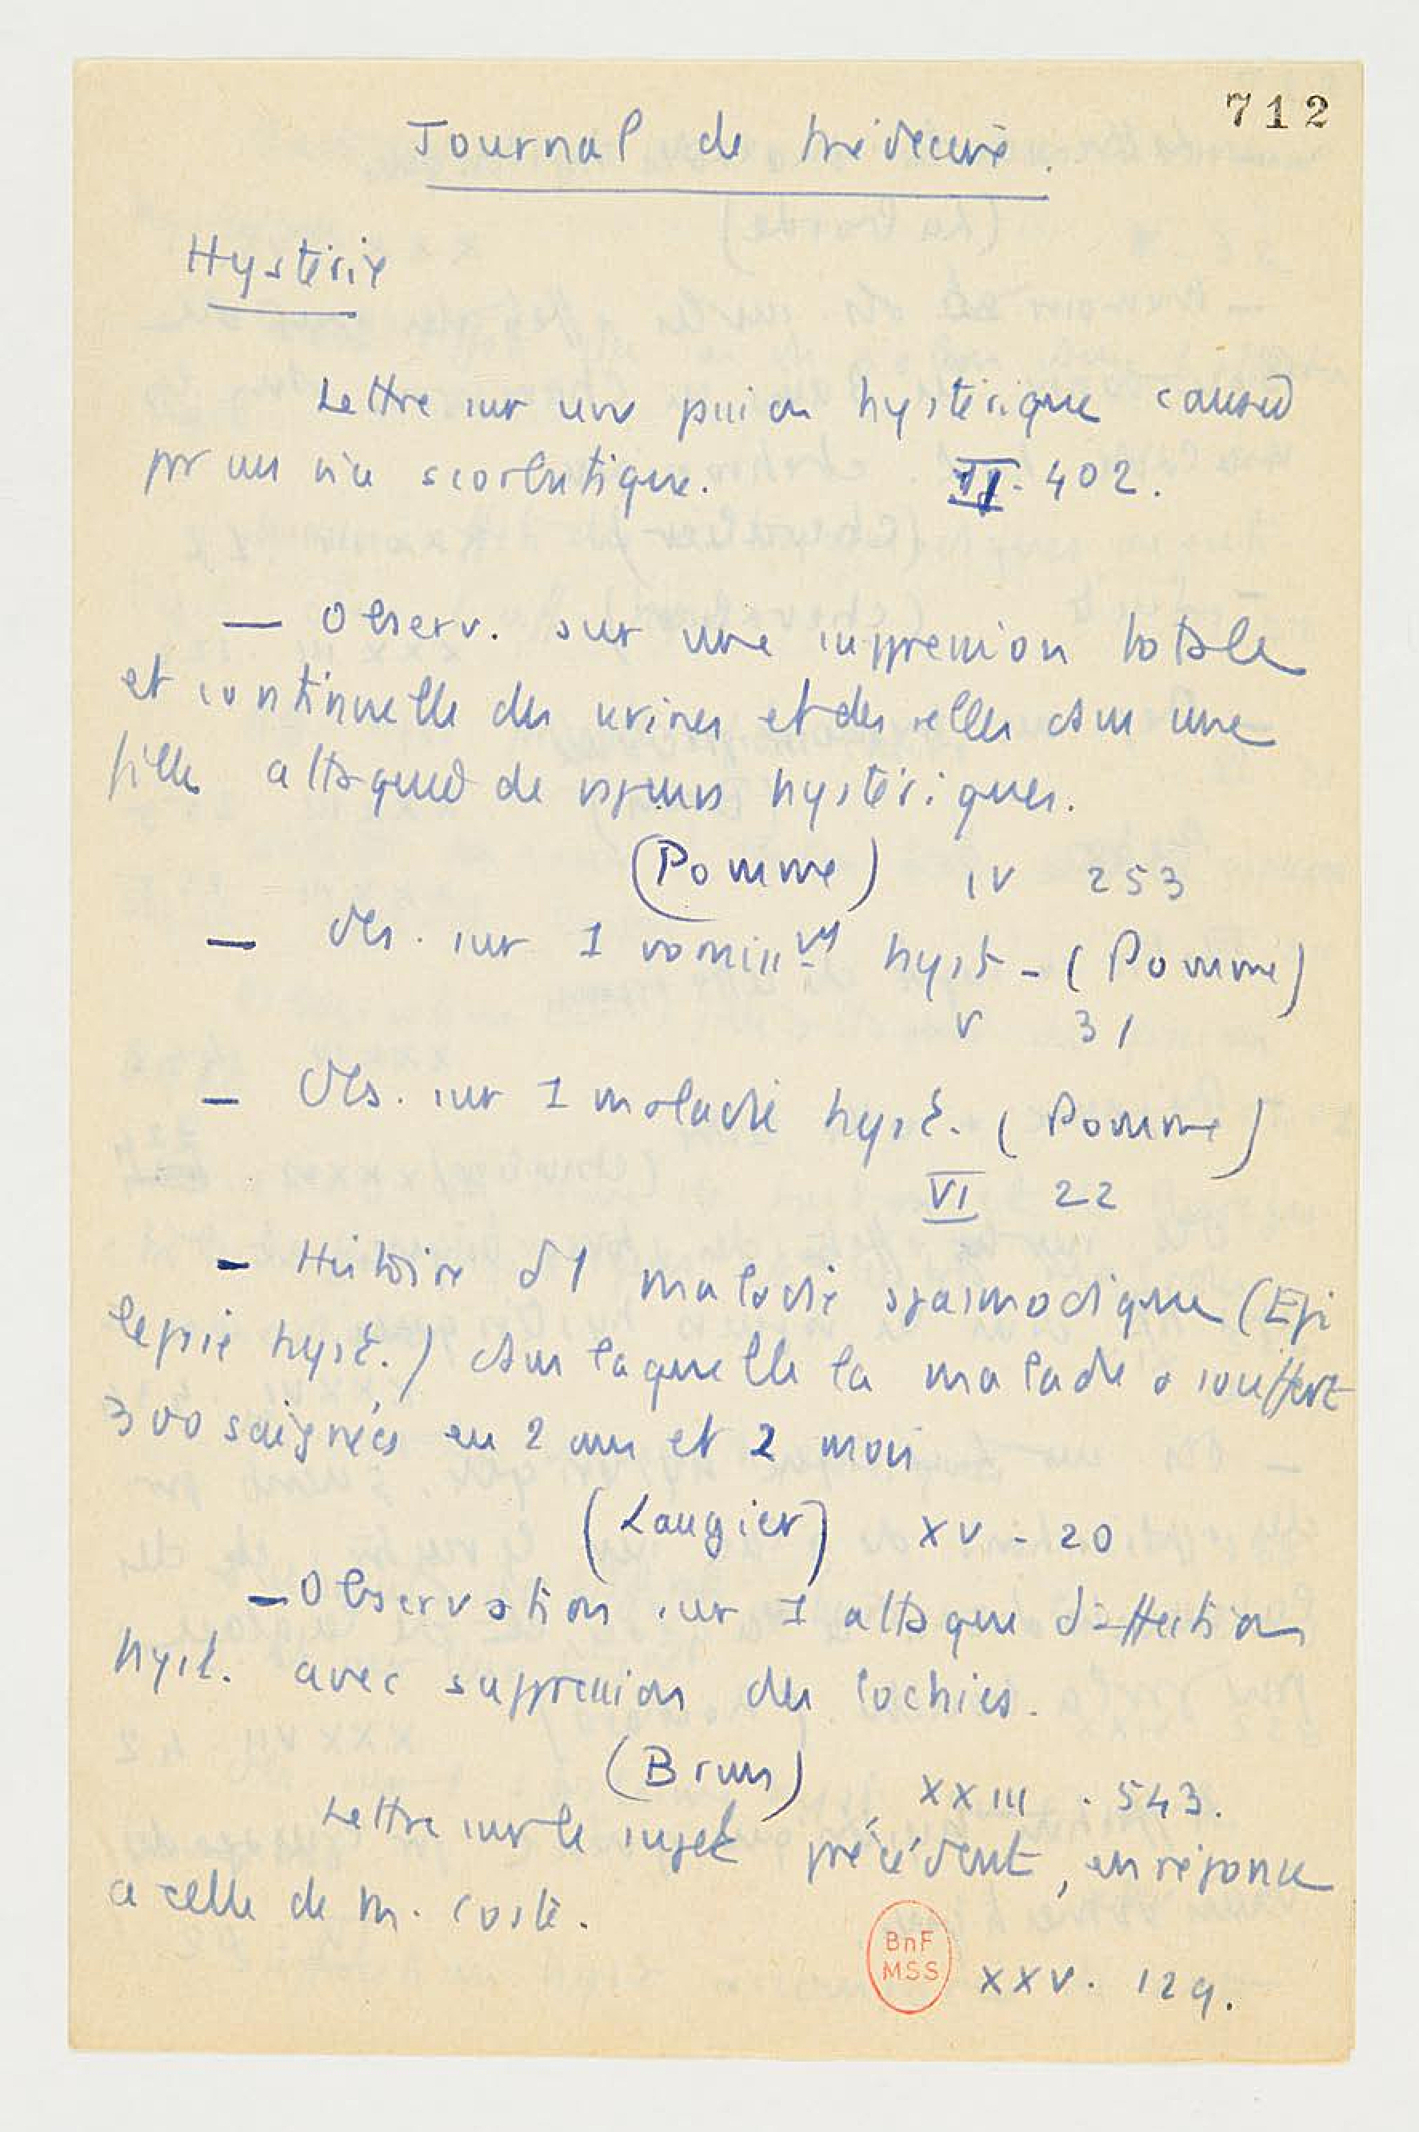 712
Journal de médecine.
Hystérie
Lettre sur une passion hystérique causée
par un vice scorbutique. II. 402.
— Observ. sur une suppression totale
et continuelle des urines et des selles dans une
fille attaquée de vapeurs hystériques.
(Pomme) IV 253
— Obs. sur 1 vomissnt hyst - (Pomme)
V 31
— Obs. sur 1 maladie hyst. (Pomme)
VI 22
— Histoire d'1 maladie spasmodique (Epi
lepsie hyst.) dans laquelle la malade a souffert
300 saignées en 2 ans et 2 mois
(Laugier) XV - 20
— Observation sur 1 attaque d'affection
hyst. avec suppression des lochies.
(Brun) XXIII . 543.
Lettre sur le sujet précédent, en réponse
a celle de M. Coste.
BnF
MSS
XXV. 129.